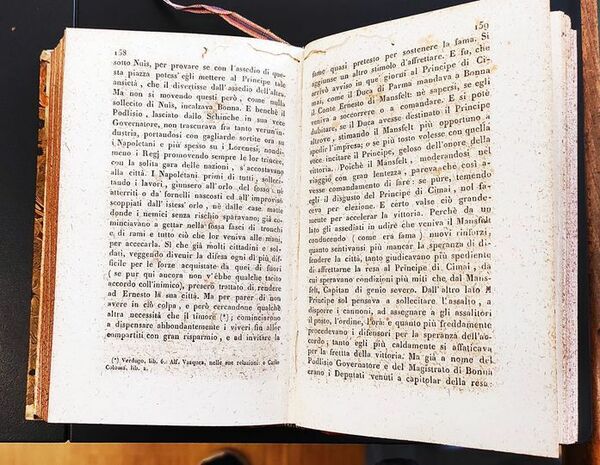 158
sotto Nuis, per provare se con l'assedio di que-
sta piazza potess'egli mettere al Principe tale
ansietà, che il divertisse dall'assedio dell'altra.
Ma non si movendo questi però, come nulla
sollecito di Nuis, incalzava Bonna. E benchè il
Podlisio, lasciato dallo Schinche in sua vece
Governatore, non trascurava fra tanto verun'in-
dustria, portandosi con gagliarde sortite ora su
i Napoletani e più spesso su i Lorenesi, nondi-
meno i Regj promovendo sempre le lor trincee,
con la solita gara delle nazioni, s'accostavano
alla città. I Napoletani primi di tutti, solleci-
tando i lavori, giunsero all'orlo del fosso; nè
atterriti o da' fornelli nascosti ed all'improviso
scoppiati dall'istess'orlo, nè dalle case matte
donde i nemici senza rischio sparavano, già co-
minciavano a gettar nella fossa fasci di tronchi
e di rami e tutto ciò che lor veniva alle mani,
per accecarla. Sì che già molti cittadini e sol-
dati, veggendo divenir la difesa ogni dì più dif-
ficile per le forze acquistate da quei di fuori
(se pur qui ancora non v'ebbe qualche tacito
accordo coll'inimico), preser trattato di rendere
ad Ernesto la sua città. Ma per parer di non
avere in ciò colpa, e però cercandone qualche
altra necessità che il timore (*); cominciarono
a dispensare abbondantemente i viveri fin allor
compartiti con gran risparmio, e ad invitar la
(*) Verdugo, lib. 6. Alf. Vasquez, nelle sue relazioni: e Carlo
Coloma, lib. 2.
159
fame quasi pretesto per sostenere la fama. Si
aggiunse un altro stimolo d'affrettare. E fu, che
arrivò avviso in que' giorni al Principe di Ci-
mai, come il Duca di Parma mandava a Bonna
il Conte Ernesto di Mansfelt: nè sapersi, se egli
veniva a soccorrere o a comandare. E si potè
dubitare, se il Duca avesse destinato il Principe
altrove, stimando il Mansfelt più opportuno a
spedir l'impresa; o se più tosto volesse con quella
voce incitare il Principe, geloso dell'onore della
vittoria. Poichè il Mansfelt, moderandosi nel
viaggio con gran lentezza, pareva che così a-
vesse comandamento di fare: se pure, temendo
egli il disgusto del Principe di Cimai, nol fa-
ceva per elezione. E certo valse ciò grande-
mente per accelerar la vittoria. Perchè da un
lato gli assediati in udire che veniva il Mansfelt
conducendo (come era fama) nuovi rinforzi;
quanto sentivansi più mancar la speranza di di-
fendere la città, tanto giudicavano più spediente
di affrettarne la resa al Principe di Cimai, da
cui speravano condizioni più miti che dal Mans-
felt, Capitan di genio severo. Dall'altro lato il
Principe sol pensava a sollecitare l'assalto, a
disporre i cannoni, ad assegnare a gli assalitori
il posto, l'ordine, l'ora: e quanto più freddamente
procedevano i difensori per la speranza dell'ac-
cordo, tanto egli più caldamente si affaticava
per la fretta della vittoria. Ma già a nome del
Podlisio Governatore e del Magistrato di Bonna
erano i Deputati venuti a capitolar della resa: